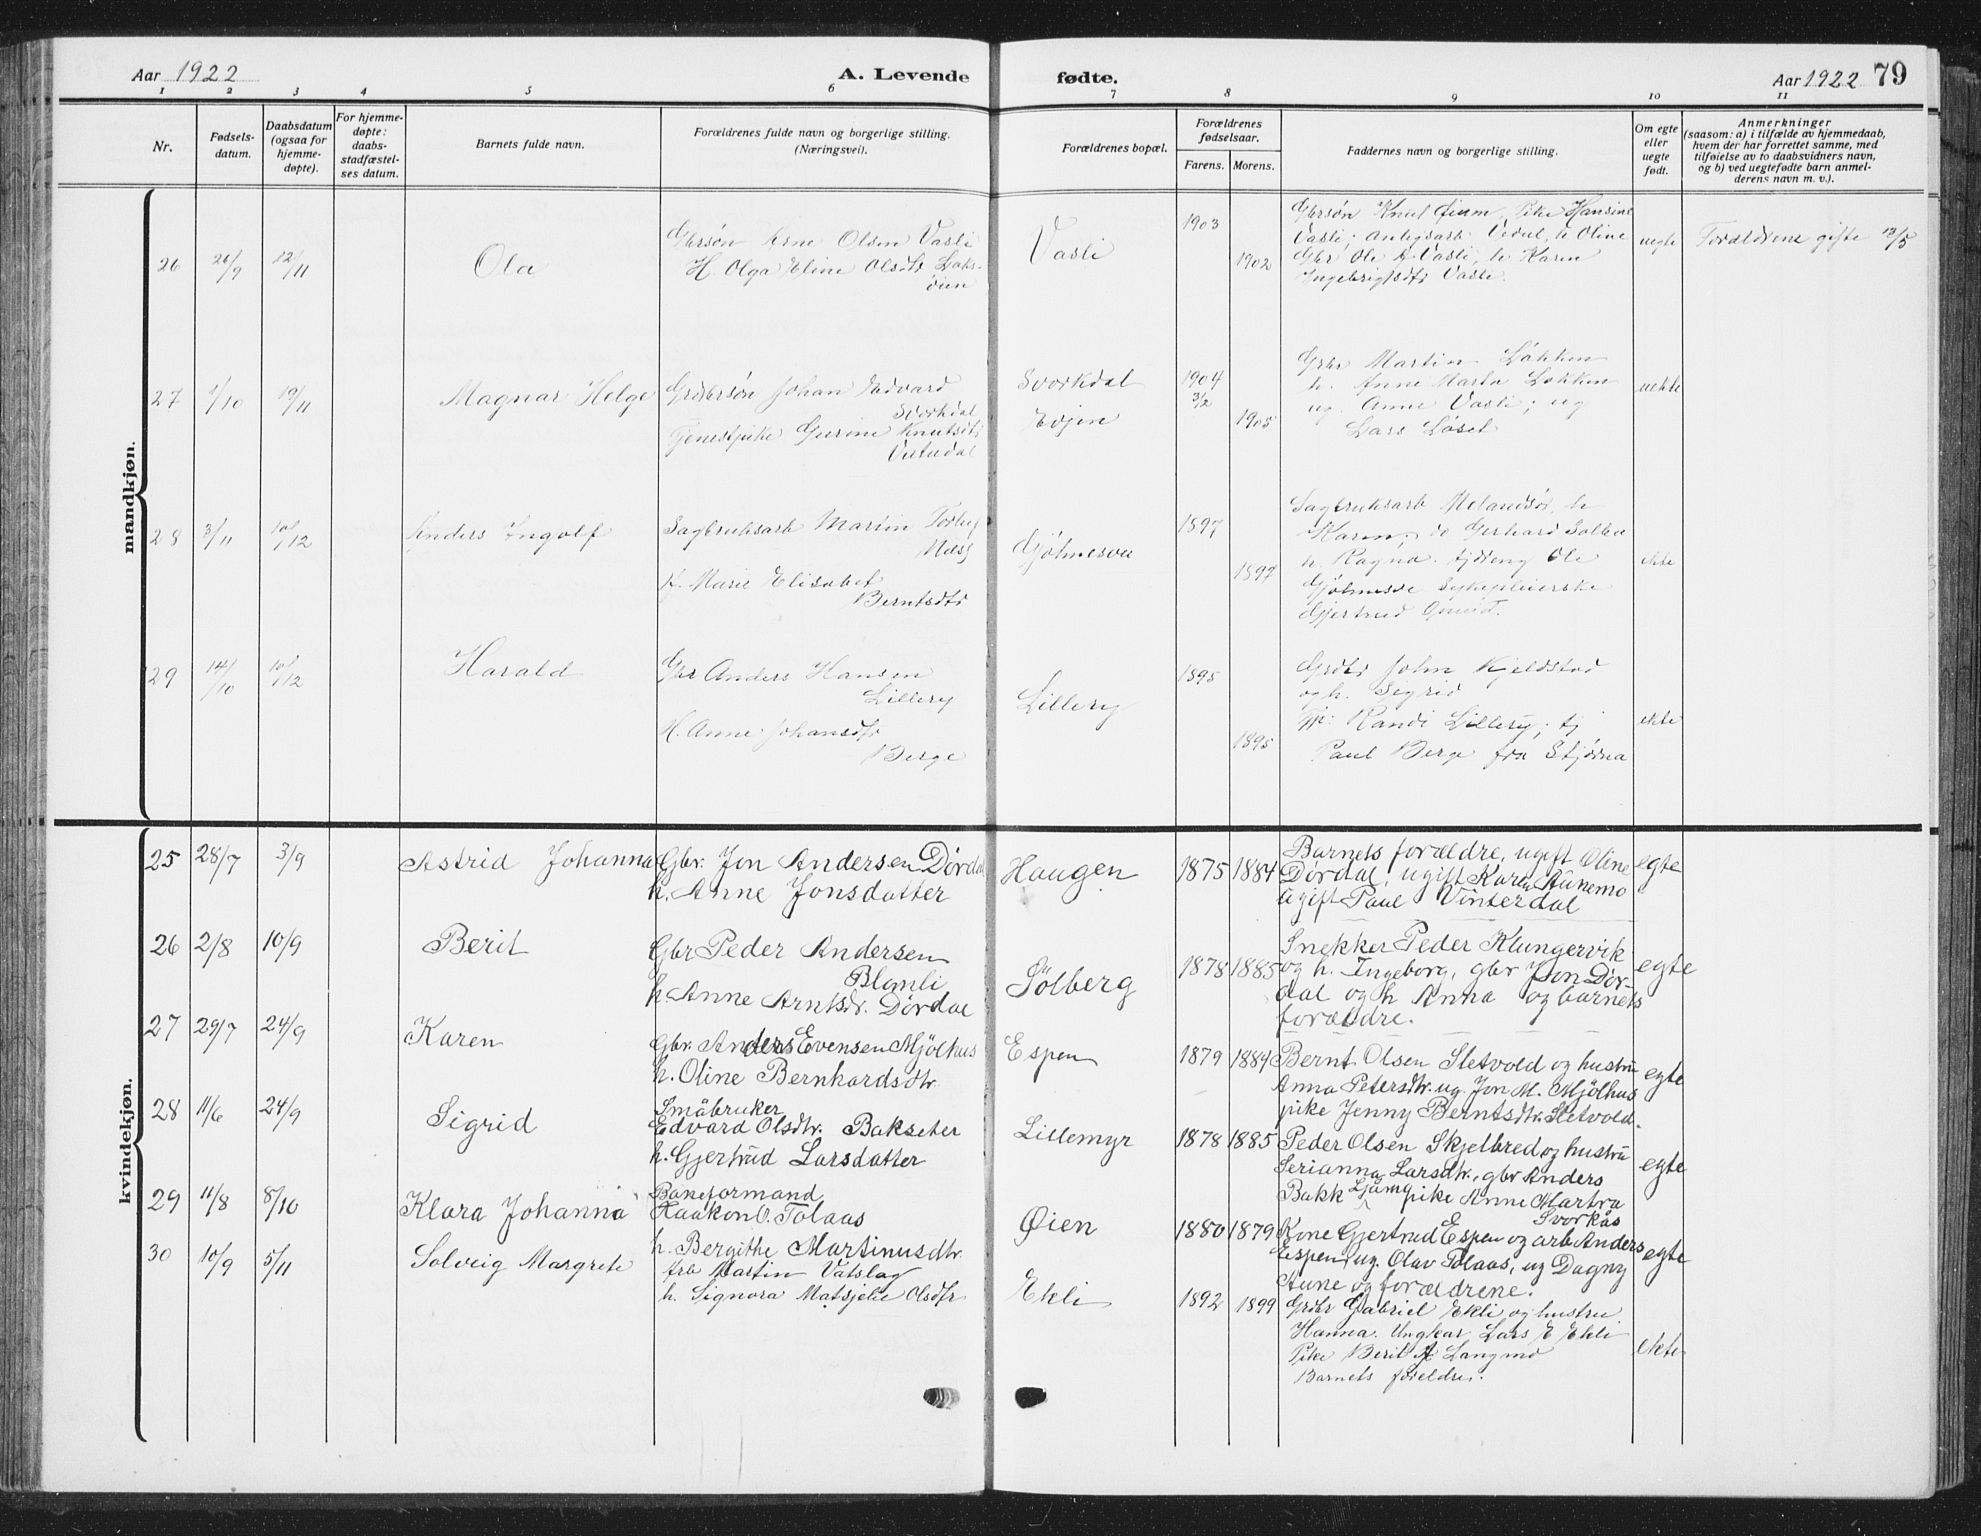 Aar 1922
A. Levende
fødte.
Aar 1922 79
1 2 3 4 5 6 7 8 9 10 11
Nr.
Fødsels-
datum.
Daabsdatum
(ogsaa for
hjemme-
døpte).
For hjemme-
døpte:
daabs-
stadfæstel-
ses datum.
Barnets fulde navn.
Forældrenes fulde navn og borgerlige stilling.
(Næringsvei).
Forældrenes bopæl.
Forældrenes
fødselsaar.
Farens. Morens.
Faddernes navn og borgerlige stilling.
Om egte
eller
uegte
født.
Anmerkninger
(saasom: a) i tilfælde av hjemmedaab,
hvem der har forrettet samme, med
tilføielse av to daabsvidners navn,
og b) ved uegtefødte barn anmel-
derens navn m. v.).
mandkjøn.
26 26/9 12/11 Ola
Gbrsøn Arne Olsen Vasli
H. Olga Eline Olsdtr Laks-
øien
Vasli
1903
1902
Gbrsøn Knut Pike Hansine
Vasli, Vedul, h Oline
Gbr Ole A Vasli, h Karen
Ingebrigtsdtr Vasli.
uegte
Forældrene gifte 13/5
27 1/10 19/11 Magnar Helge
Grdbrsøn Johan Edvard
Svorkdal
Tjenestpike Gurine Knutsdtr
Svorkdal
Evjen
1904
3/2
1905
Grbr Martin Løkken
h. Anne Marta Løkken
ug. Anne Vasli; ug
Lars Løset
uekte
28 3/11 10/12 Anders Ingolf
Sagbruksarb Martin
Næss
H. Marie Elisabet
Berntsdtr
Gjølmesøa
1897
1897
Sagbruksarb h
Karen, do Gerhard
h. Ragna. Ole
Gjølmesøe Sykepleierske
Gjertrud
ekte
29 14/10 10/12 Harald
Gbr Anders Hansen
Lillery
H. Anne Johansdtr
Berge
Lillery
1895
1895
Grdbr John Kjeldstad
og h. Sigrid
Randi Lillery; tj
Paul Berge fra Stjørna
ekte
kvindekjøn.
25 28/7 3/9 Astrid Johanna
Gbr. Jon Andersen Dørdal
h. Anne Jonsdatter
Haugen
1875 1884
Barnets forældre, ugift Oline
Dørdal, ugift Karen Aunemo
ugift Paul Vinterdal
egte
26 2/8 10/9 Berit
Gbr Peder Andersen
Blomli
h. Anne Arntsdr. Dørdal
Sølberg
1878 1885
Snekker Peder Klungervik
og h. Ingeborg, gbr Jon Dør-
dal og h Anna og barnets
forældre.
egte
27 29/7 24/9 Karen
Gbr. Anders Evensen Mjølhus
h. Oline Bernhardsdtr.
Espen
1879 1884
Bernt Olsen Sletvold og hustru
Anna Petersdtr. ug. Jon M. Mjølhus
pike Jenny Berntsdtr. Sletvold.
egte
28 11/6 24/9 Sigrid
Småbruker
Edvard Olsdtr. Bakseter
h. Gjertrud Larsdatter
Lillemyr
1878 1885
Peder Olsen Skjelbred og hustru
Serianna Larsdtr., gbr Anders
Bakk Ljamo pike Anne Martra
Svorkås
egte
29 11/8 8/10 Klara Johanna
Baneformand
Haakon O. Tolaas
h. Bergithe Martinusdtr.
Øien
1880 1879
Kone Gjertrud Espen og arb Anders
Espen, ug. Olav Tolaas, ug Dagny
Aune og forældrene.
egte
30 10/9 5/11 Solveig Margrete
Martin Vatslag
h. Signora Matsjelie Olsdtr
Ekli
1892 1899
Grdbr Gabriel Ekli og hustru
Hanna. Ungkar Lars E Ekli
Pike Berit A Langmo
Barnets foreldre.
ekte